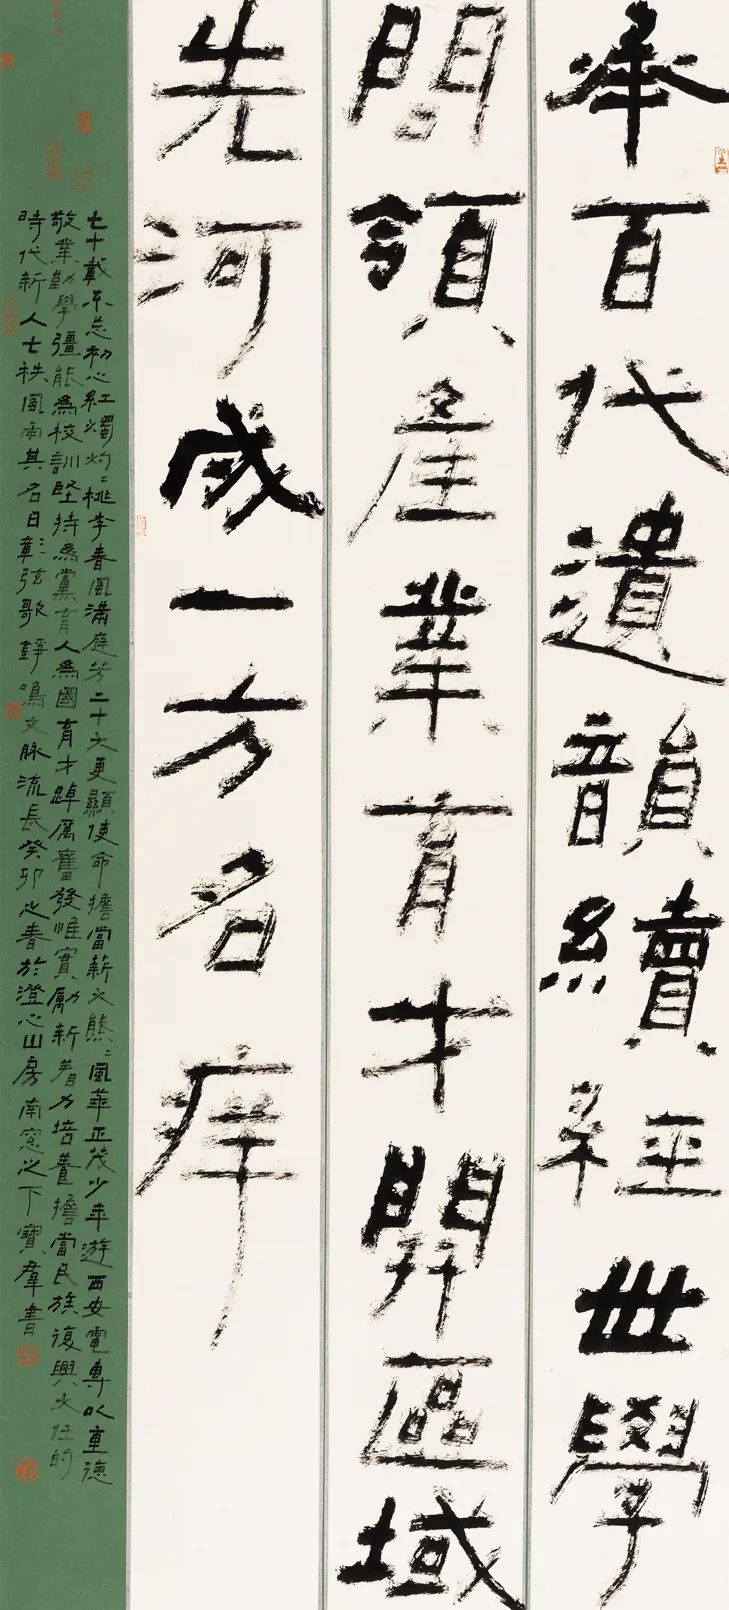 承百代遺韻續經世學
問領產業育才開區域
先河成一方名庠
七十載不忘初心紅燭灼灼桃李春風滿庭芳二十大更顯使命擔當薪火熊熊風華正茂少年遊西安電專以重德
敬業勤學彊能為校訓堅持為黨育人為國育才踔厲奮發惟實勵新着力培養擔當民族復興大任的
時代新人七秩風雨其名日彰弦歌錚鳴文脈流長癸卯之春於澄心山房南窗之下寶群書